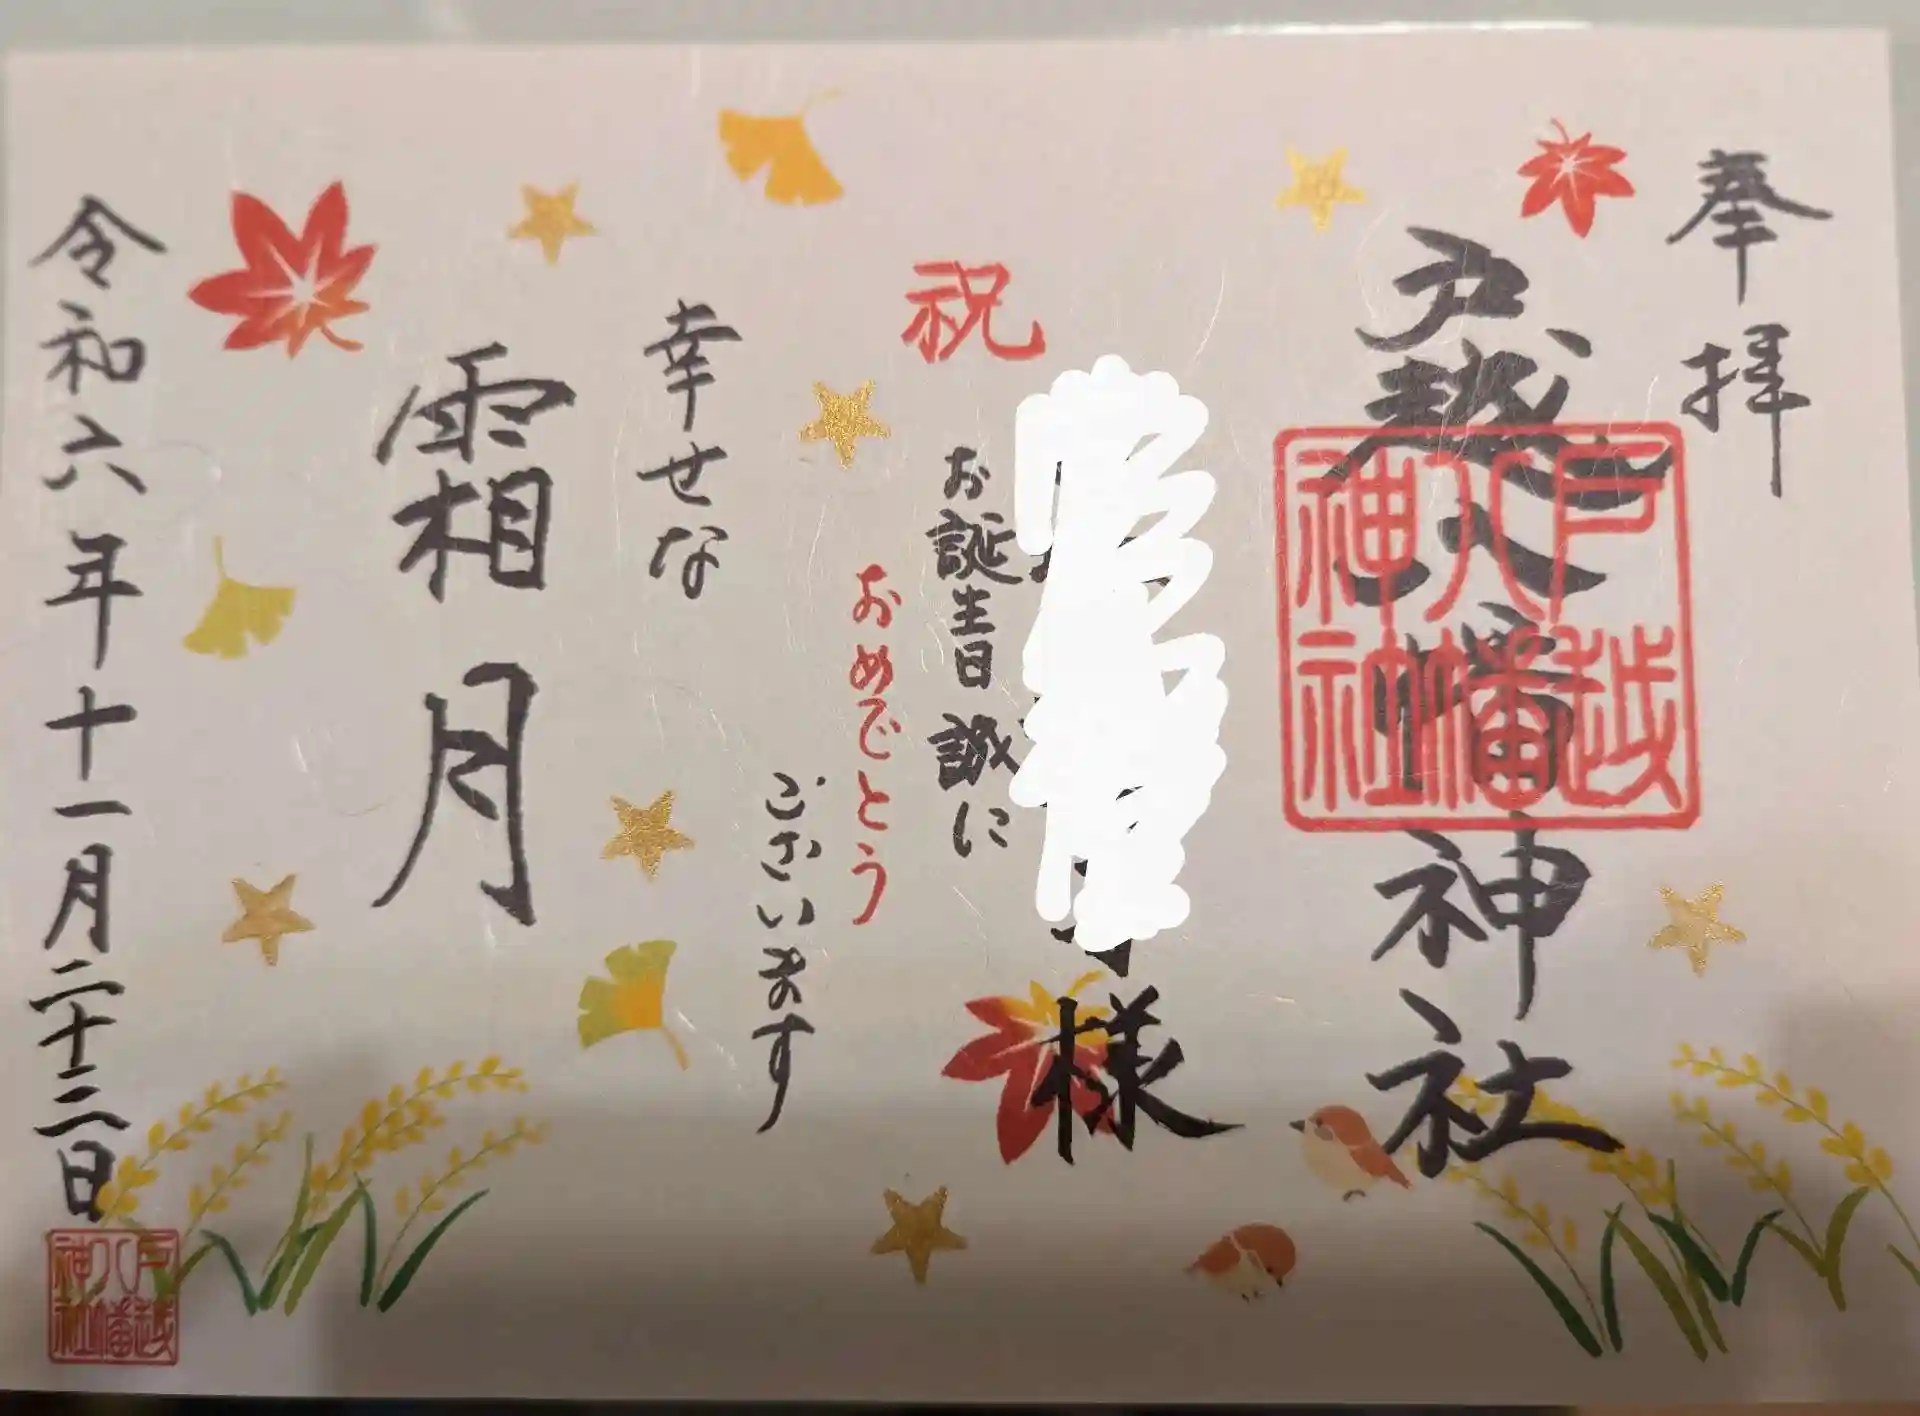 奉拝
戸越八幡神社
戸越
八幡
神社
様
祝
お誕生日 誠に
おめでとう
ございます
幸せな
霜月
令和六年十一月二十三日
戸越
八幡
神社